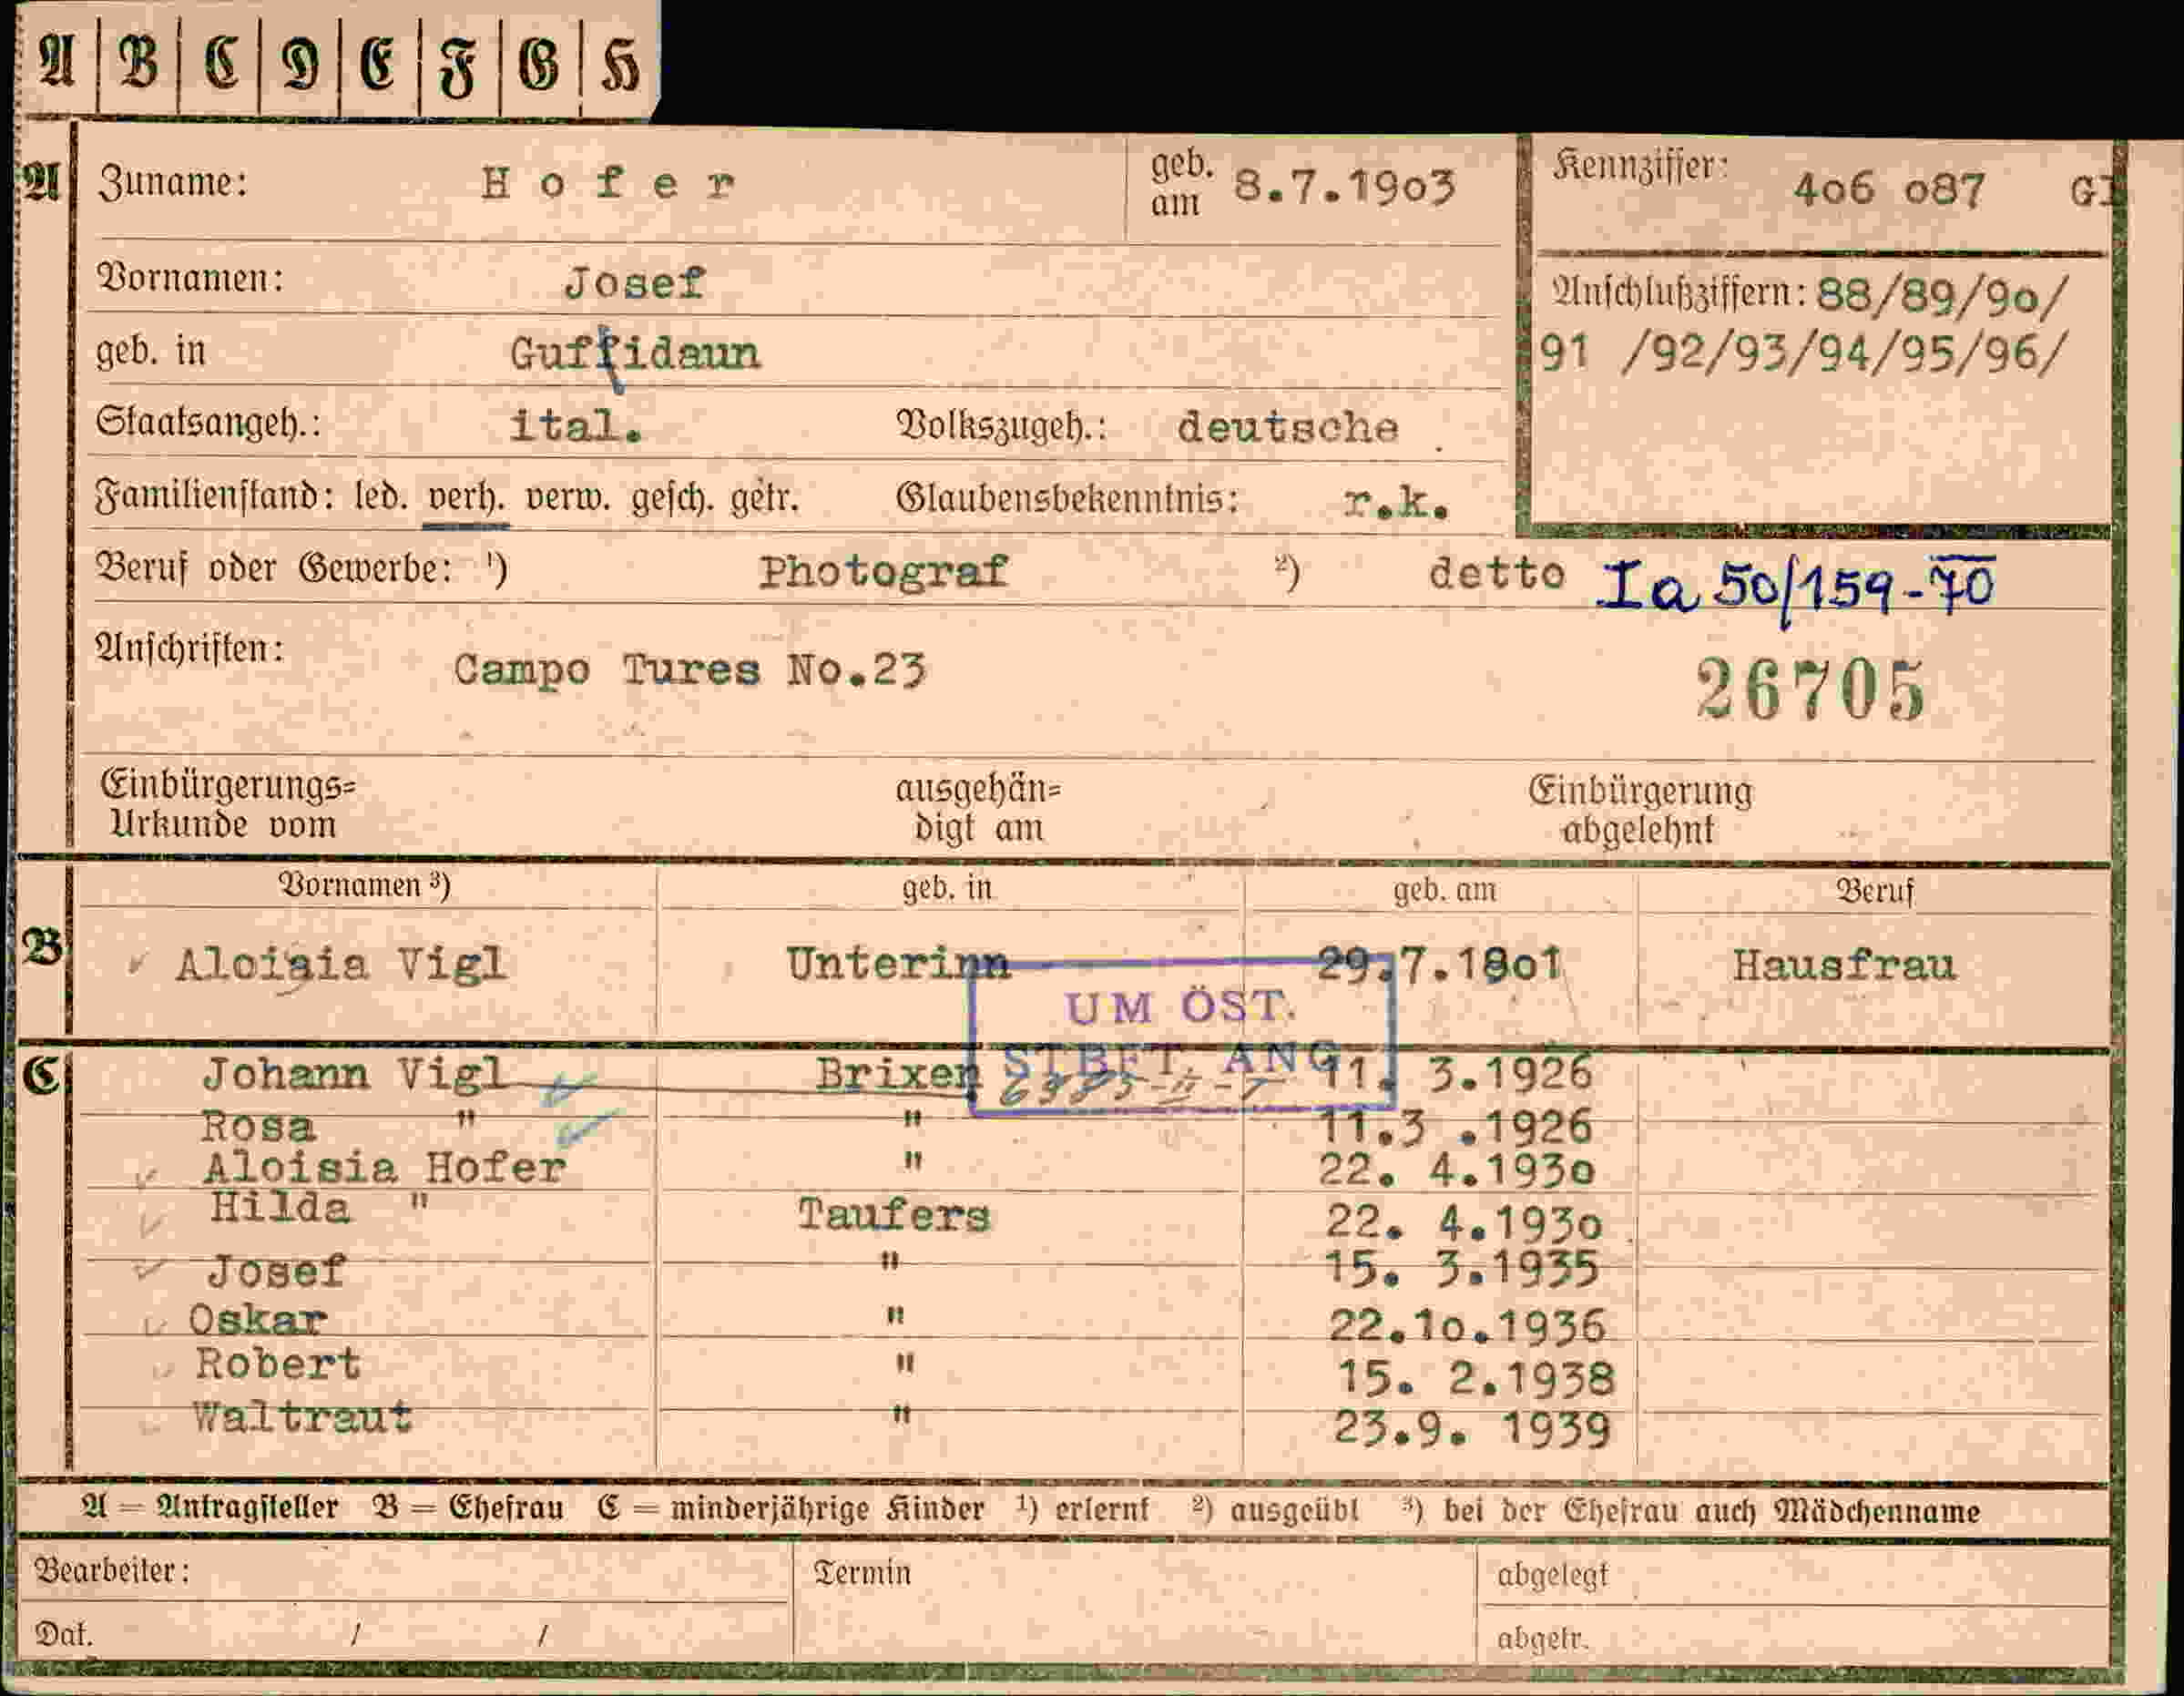 A B C D E F G H
A Zuname: Hofer geb. am 8.7.1903 Kennziffer: 406 087
Vornamen: Josef Anschlußziffern: 88/89/90/
geb. in Guffidaun 91 /92/93/94/95/96/
Staatsangeh.: ital. Volkszugeh.: deutsche
Familienstand: led. verh. verw. gesch. getr. Glaubensbekenntnis: r.k.
Beruf oder Gewerbe: ¹) Photograf ²) detto Ia 50/159-70
Anschriften: Campo Tures No.23 26705
Einbürgerungs= Urkunde vom ausgehän= digt am Einbürgerung abgelehnt
Vornamen ³) geb. in geb. am Beruf
B Aloisia Vigl Unterinn 29.7.1901 Hausfrau
UM ÖST.
STBFT. ANG
C Johann Vigl Brixen 11. 3.1926
Rosa " " 11.3 .1926
Aloisia Hofer " 22. 4.1930
Hilda " Taufers 22. 4.1930
Josef " 15. 3.1935
Oskar " 22.10.1936
Robert " 15. 2.1938
Waltraut " 23.9. 1939
A = Antragsteller B = Ehefrau C = minderjährige Kinder ¹) erlernt ²) ausgeübt ³) bei der Ehefrau auch Mädchenname
Bearbeiter: Termin abgelegt
Dat. / / abgetr.